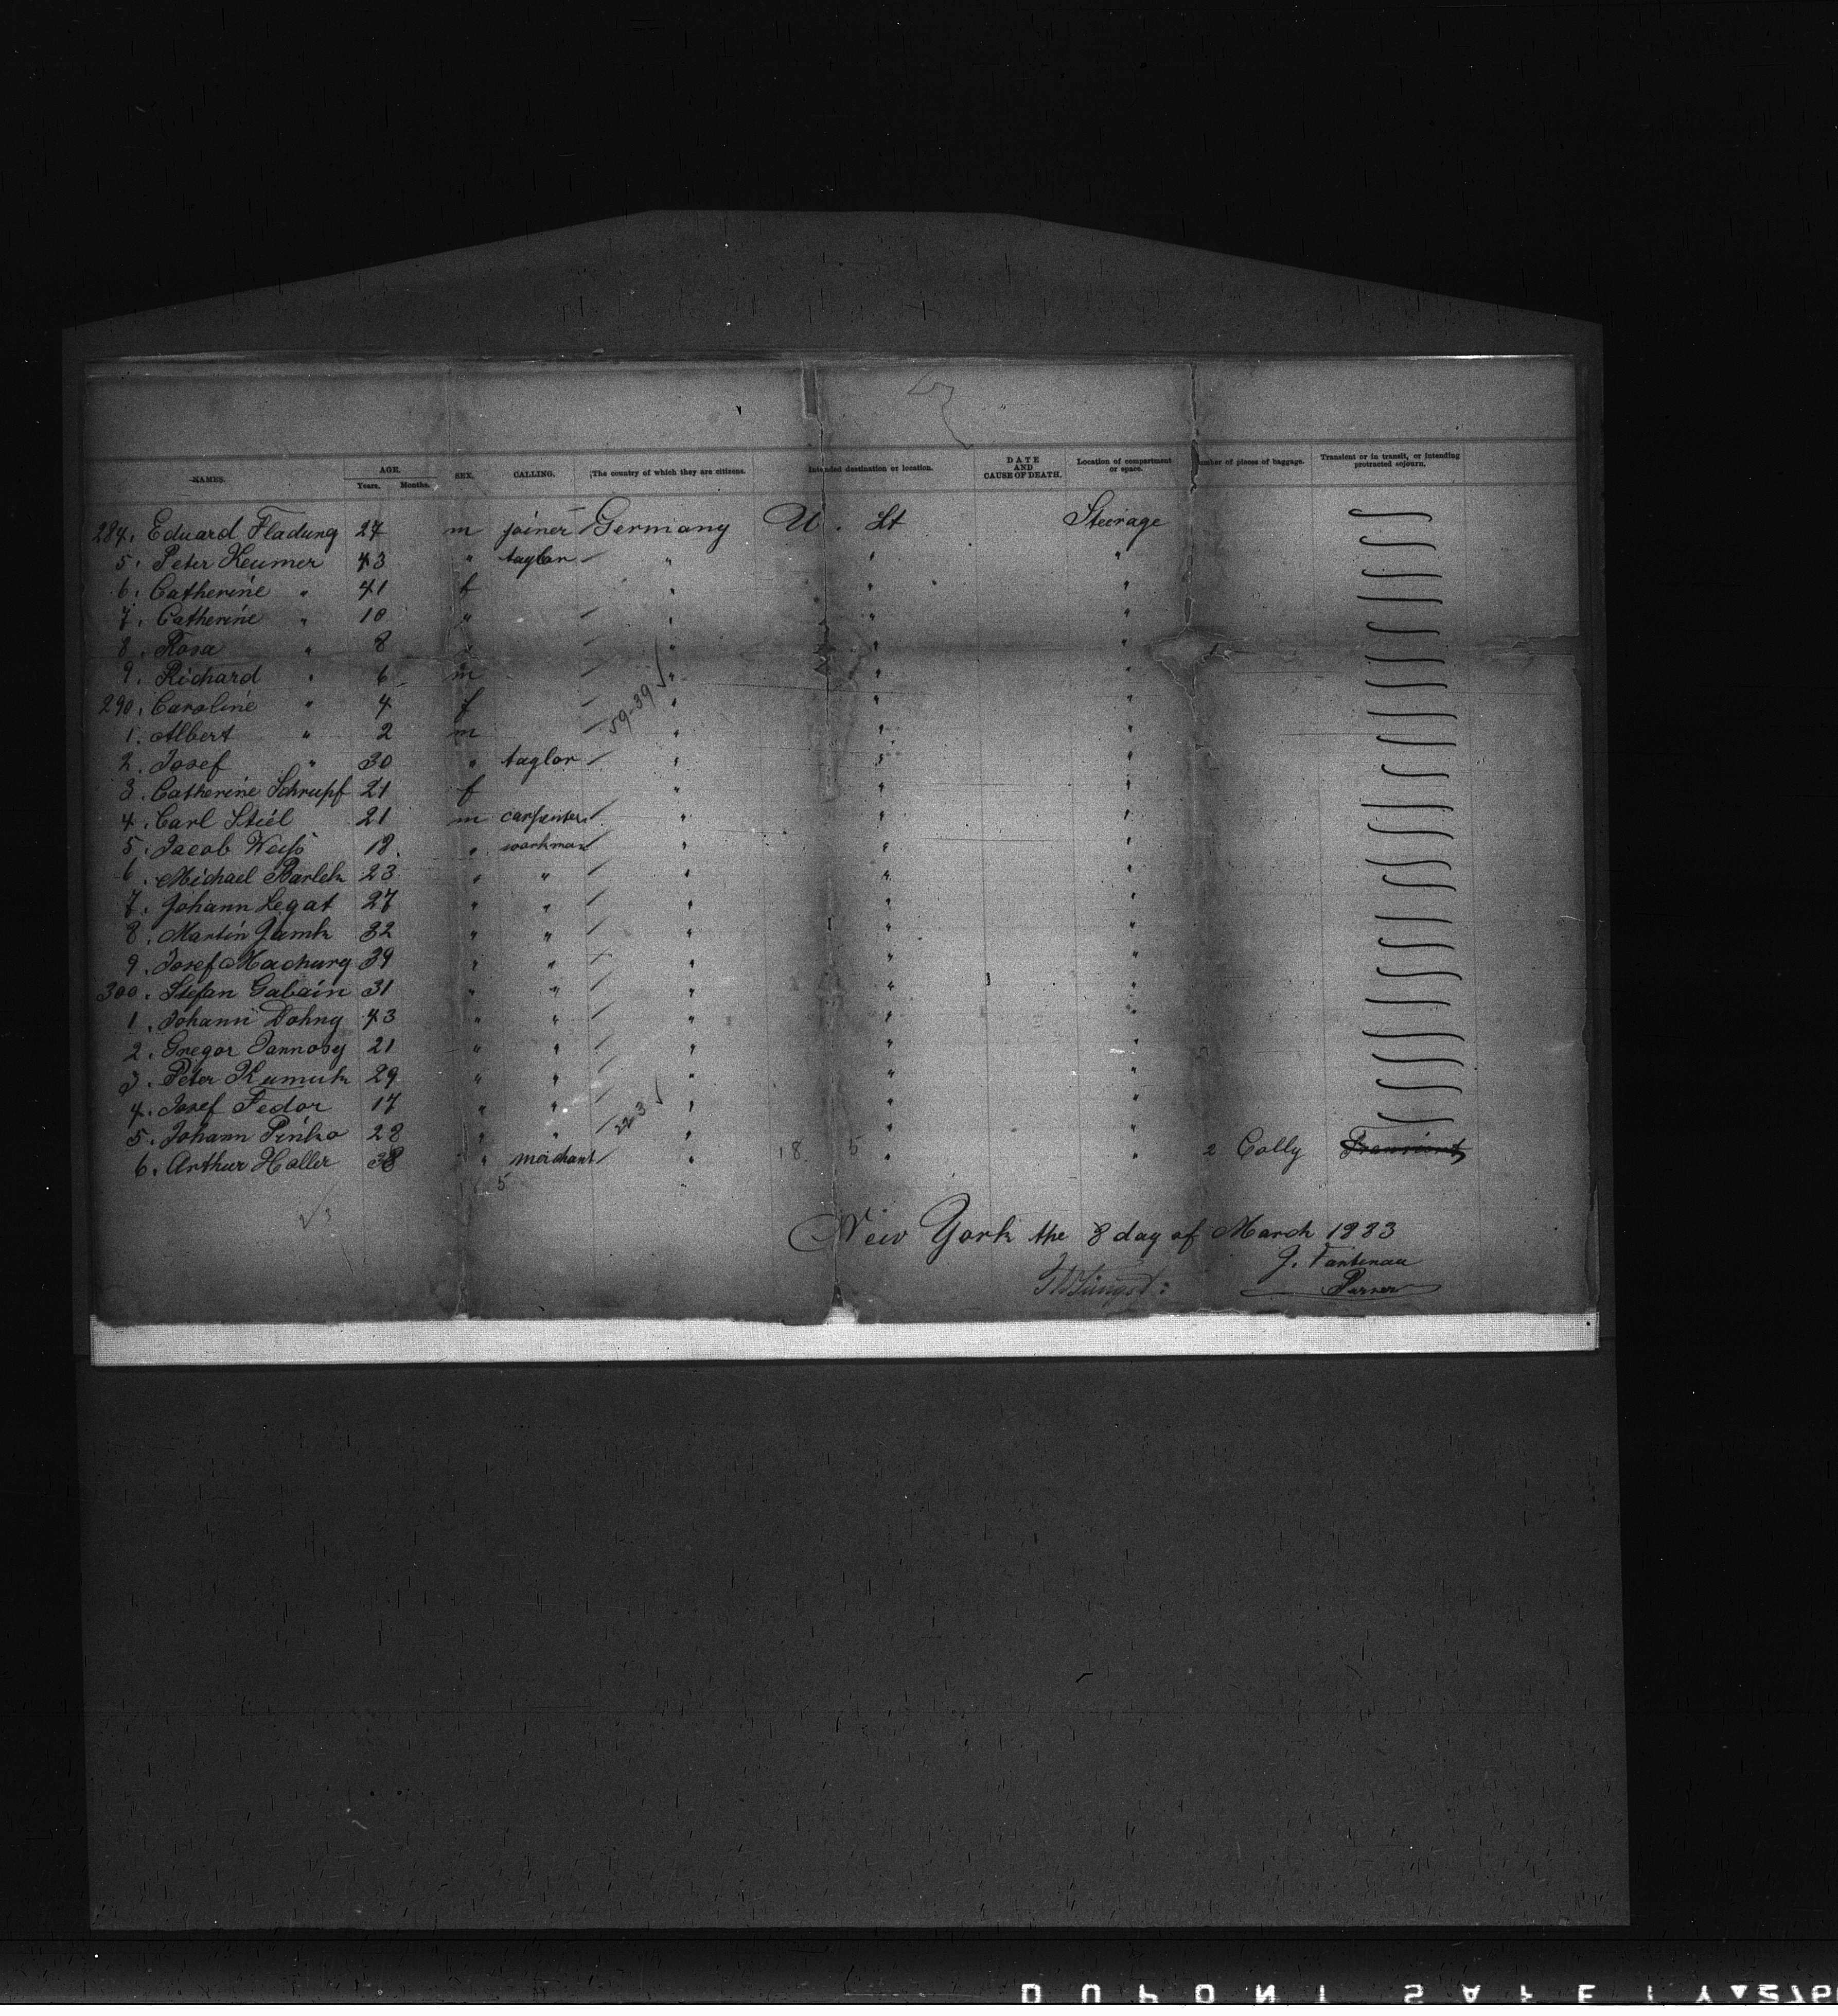 NAMES. AGE. Years. Months. SEX. CALLING. The country of which they are citizens. Intended destination or location. DATE AND CAUSE OF DEATH. Location of compartment or space. Number of pieces of baggage. Transient or in transit, or intending protracted sojourn.
284. Eduard Fladung 27 m joiner Germany U. St Steerage
5. Peter Keumer 43 " taylor " " "
6. Catherine " 41 f " " "
7. Catherine " 10 " " " "
8. Rosa " 8 " " " "
9. Richard " 6 m " " "
290. Caroline " 4 f " " "
1. Albert " 2 m " " "
2. Josef " 30 " taylor " " "
3. Catherine Schrupf 21 f " " "
4. Carl Stiel 21 m carpenter " " "
5. Jacob Weiß 18 " workman " " "
6. Michael Barlek 23 " " " " "
7. Johann Legat 27 " " " " "
8. Martin Jamk 32 " " " " "
9. Josef Machury 39 " " " " "
300. Stefan Gabain 31 " " " " "
1. Johann Dohny 43 " " " " "
2. Gregor 21 " " " " "
3. Peter Kumuk 29 " " " " "
4. Josef Fedor 17 " " " " "
5. Johann Pinko 28 " " " " "
6. Arthur Haller 38 " merchant " " " 2 Colly Transient
59-39
22 3
18 5
5
New York the 8 day of March 1883
J. Fantenau
Purser
DUPONT SAFETY 276